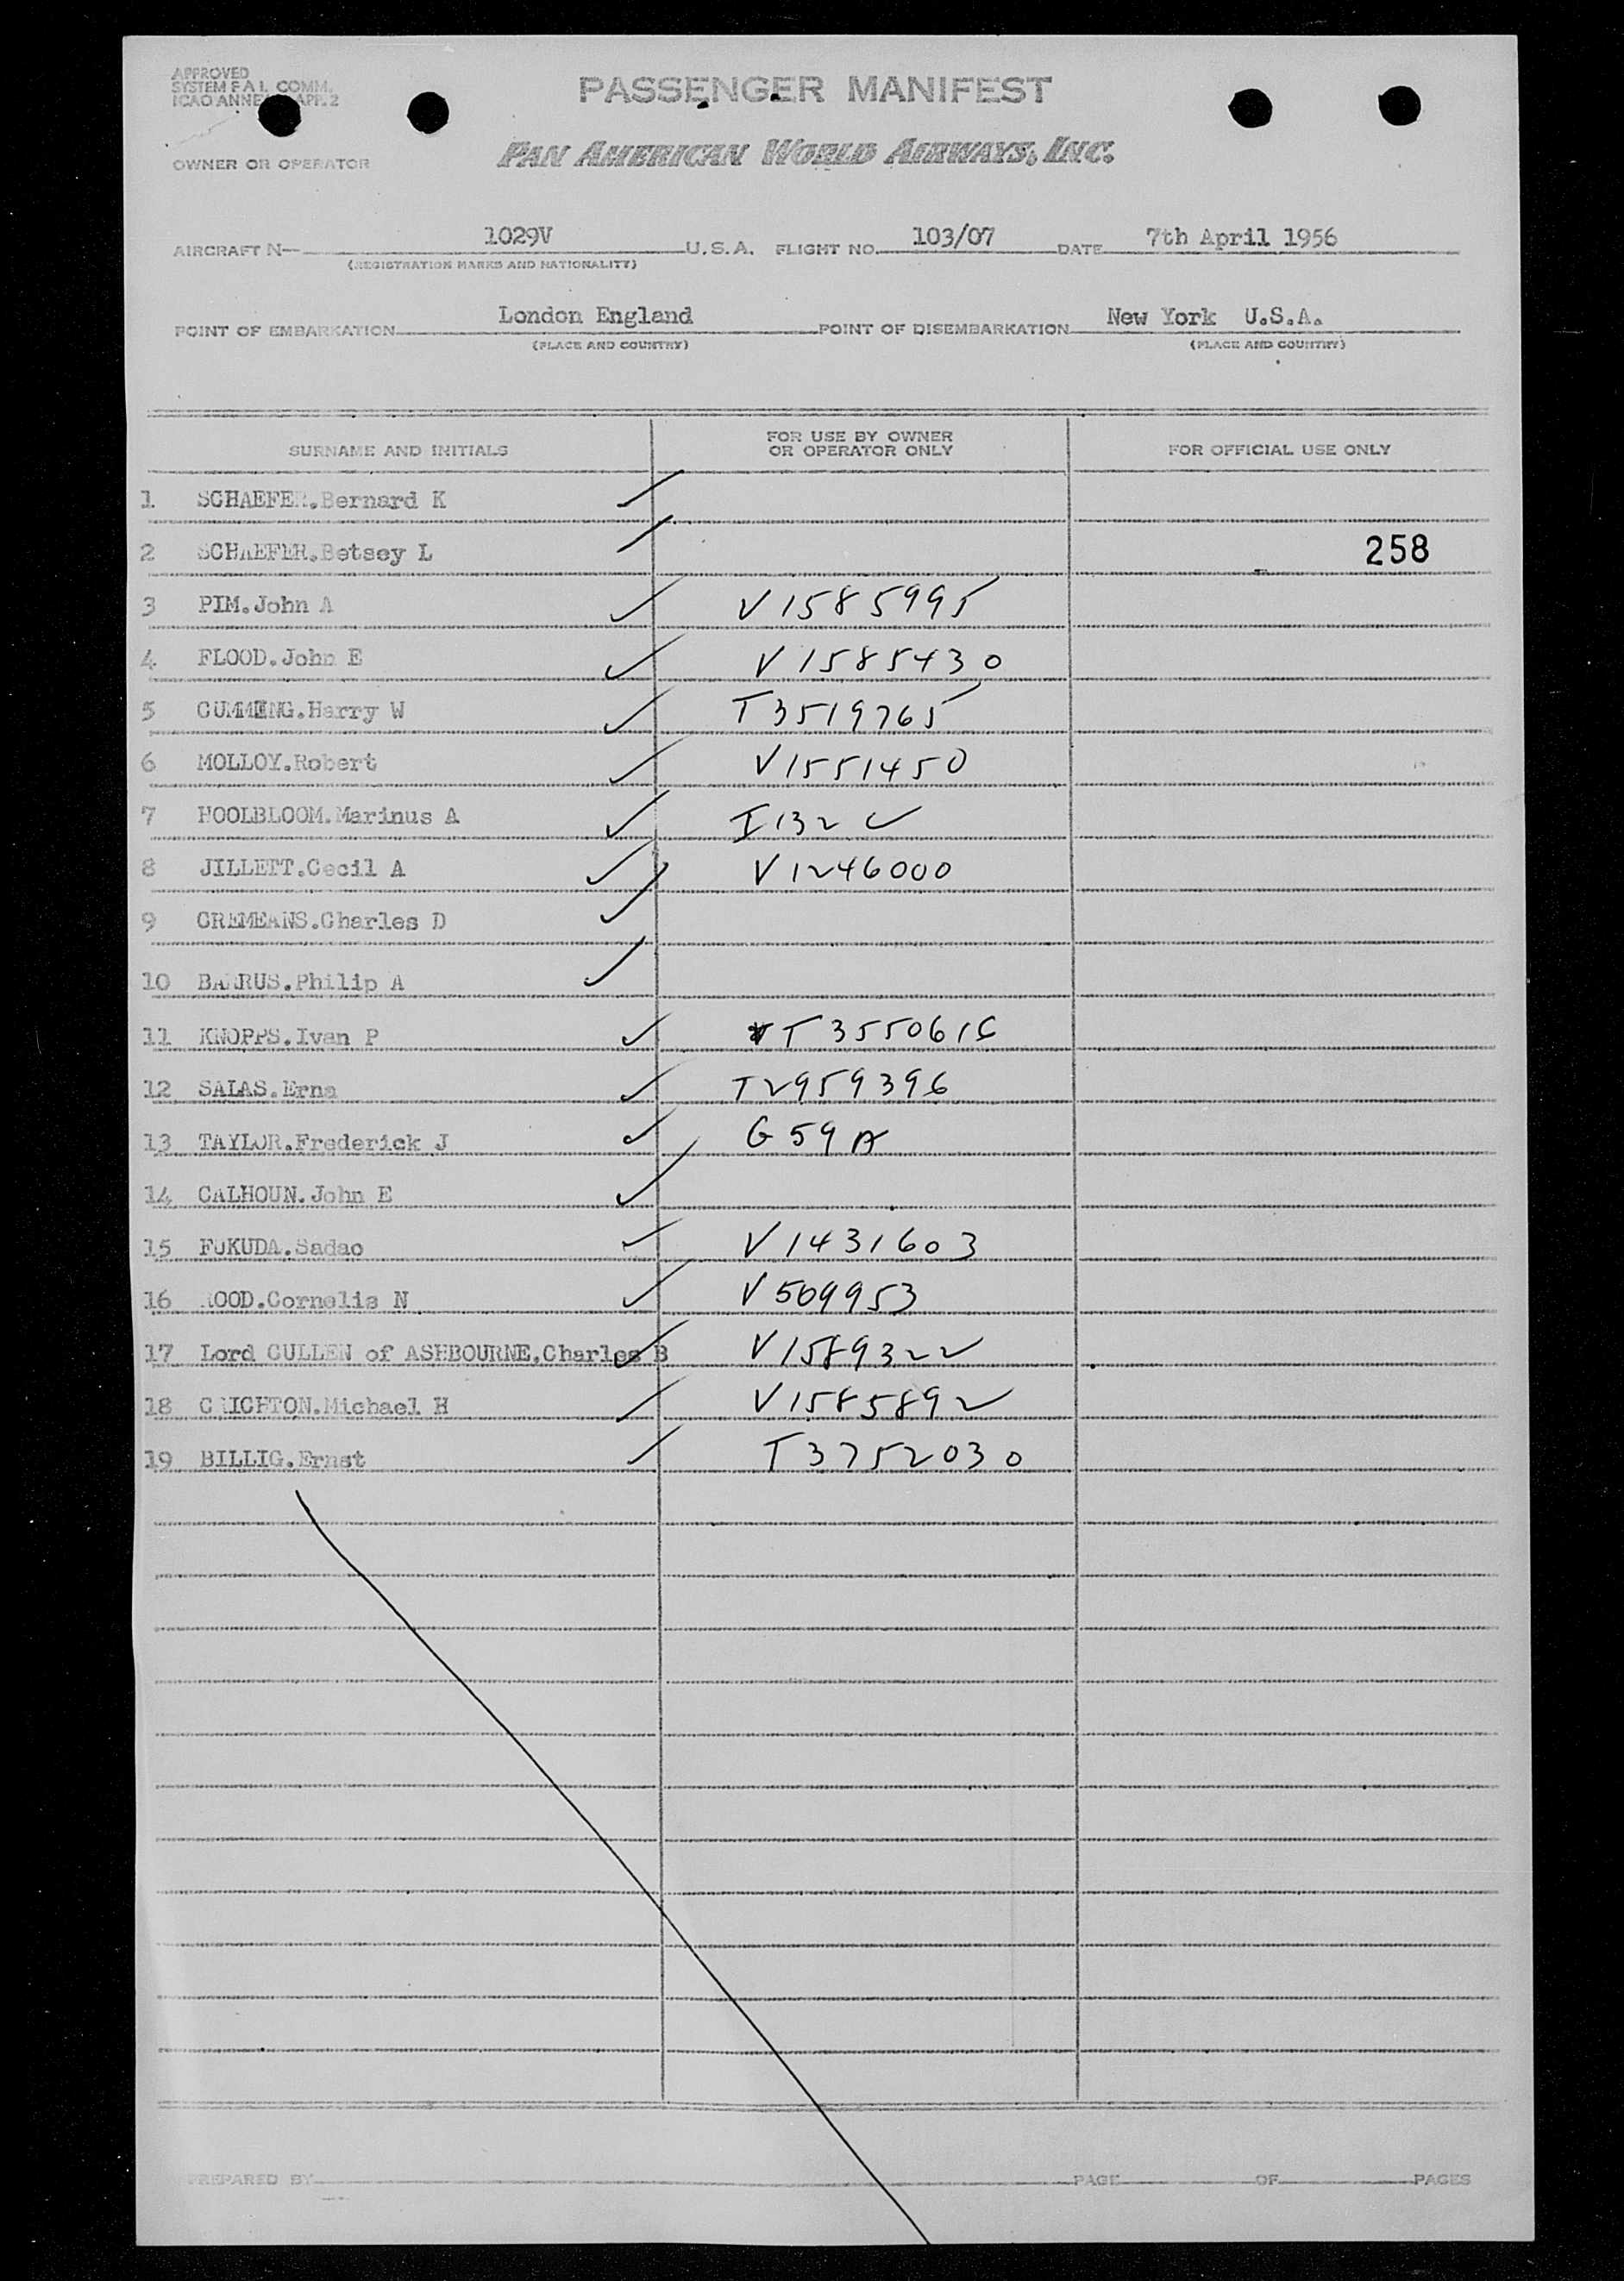 APPROVED
SYSTEM F A L COMM.
ICAO ANNE APP. 2
PASSENGER MANIFEST
OWNER OR OPERATOR
PAN AMERICAN WORLD AIRWAYS, INC.
AIRCRAFT N— 1029V U.S.A. FLIGHT NO. 103/07 DATE 7th April 1956
(REGISTRATION MARKS AND NATIONALITY)
POINT OF EMBARKATION London England POINT OF DISEMBARKATION New York U.S.A.
(PLACE AND COUNTRY) (PLACE AND COUNTRY)
SURNAME AND INITIALS FOR USE BY OWNER OR OPERATOR ONLY FOR OFFICIAL USE ONLY
1 SCHAEFER.Bernard K
2 SCHAEFER.Betsey L 258
3 PIM.John A V1585995
4 FLOOD.John E V1585430
5 CUMMING.Harry W T3519765
6 MOLLOY.Robert V1551450
7 HOOLBLOOM.Marinus A I132
8 JILLETT.Cecil A V1246000
9 CREMEANS.Charles D
10 BARRUS.Philip A
11 KNOPPS.Ivan P T355061
12 SALAS.Erna T2959396
13 TAYLOR.Frederick J G59A
14 CALHOUN.John E
15 FUKUDA.Sadao V1431603
16 ROOD.Cornelis N V509953
17 Lord CULLEN of ASHBOURNE.Charles B V1589322
18 CRICHTON.Michael H V1585892
19 BILLIG.Ernst T3752030
PREPARED BY PAGE OF PAGES